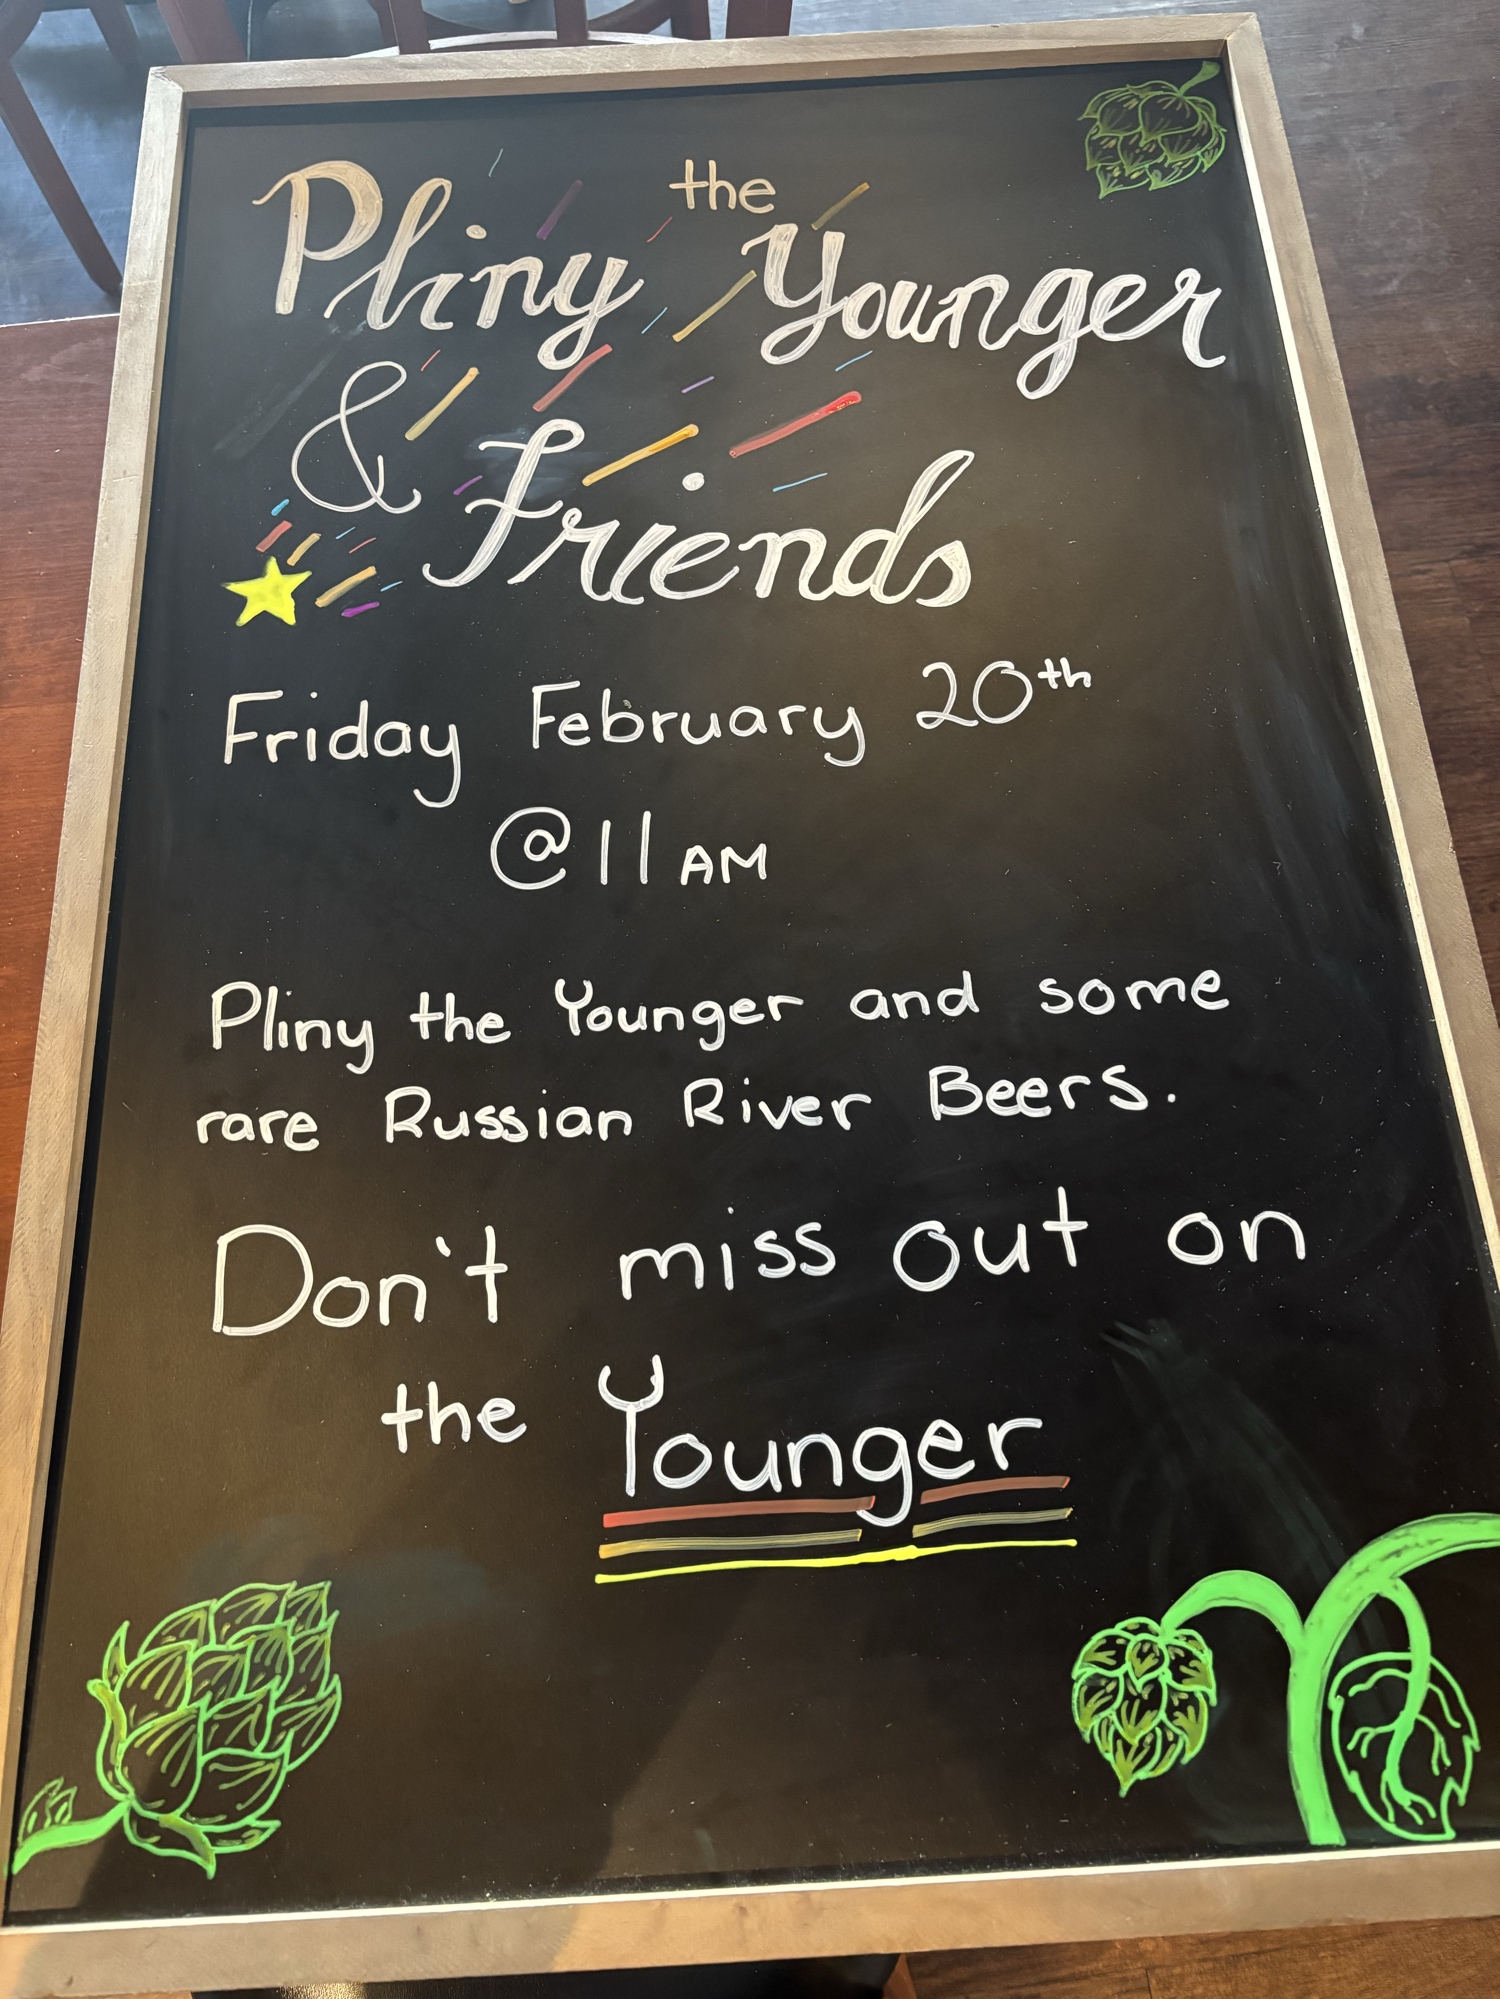 Pliny the Younger
& Friends
Friday February 20th
@ 11 AM
Pliny the Younger and some
rare Russian River Beers.
Don't miss out on
the Younger